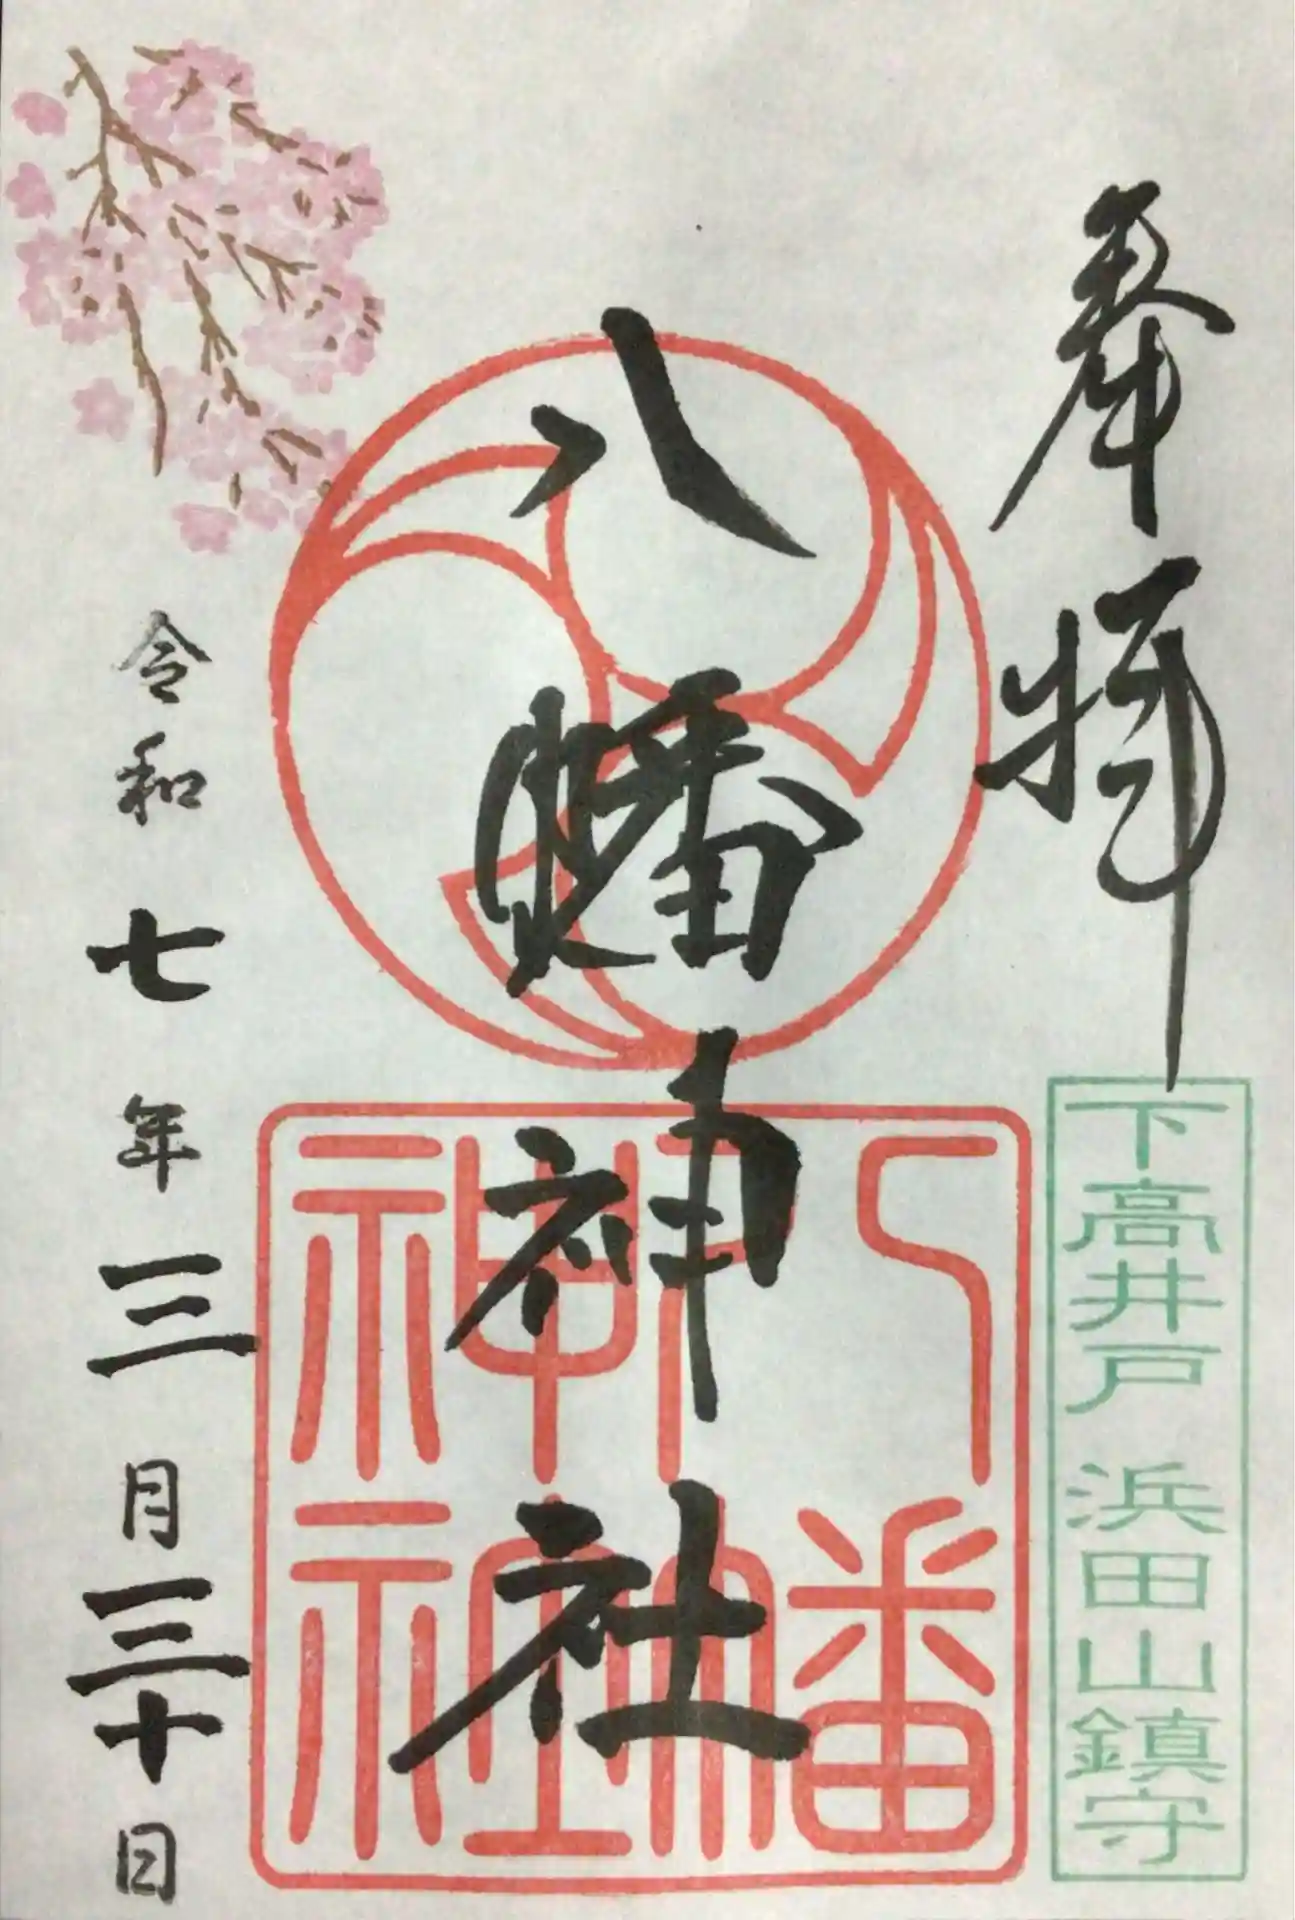 奉拝
下高井戸 浜田山鎮守
八幡神社
八幡神社
令和七年三月三十日